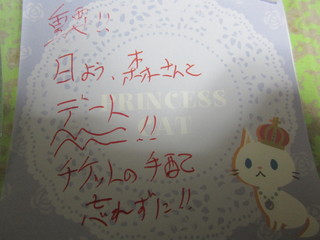 重要!!
日よう、森さんと
デート
PRINCESS
CAT
チケットの手配
忘れずに!!